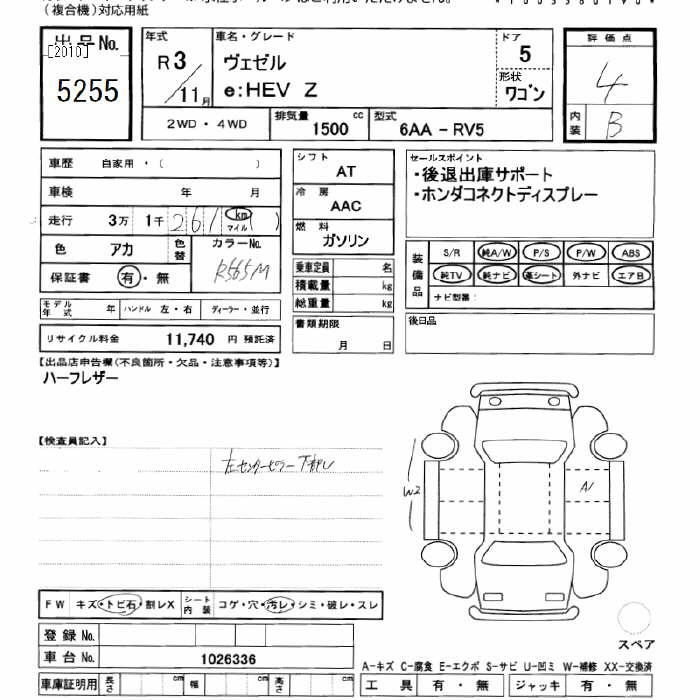 (複合機)対応用紙
出品No.
[2010]
5255
年式
R 3
11月
車名・グレード
ヴェゼル
e:HEV Z
ドア
5
形状
ワゴン
評価点
4
内装
B
2WD・4WD
排気量
1500 cc
型式
6AA - RV5
車歴
自家用・( )
車検
年 月
走行
3万 1千 261 km マイル ( )
色
アカ
色替
カラーNo.
R565M
保証書
有・無
シフト
AT
冷房
AAC
燃料
ガソリン
乗車定員 名
積載量 kg
総重量 kg
セールスポイント
・後退出庫サポート
・ホンダコネクトディスプレー
装備品
S/R 純A/W P/S P/W ABS
純TV 純ナビ 革シート 外ナビ エアB
ナビ型番:
モデル年式 年
ハンドル 左・右
ディーラー・並行
リサイクル料金 11,740 円 預託済
書類期限
月 日
後日品
【出品店申告欄(不良箇所・欠品・注意事項等)】
ハーフレザー
【検査員記入】
左センターピラー下押し
W2
A1
FW キズ・トビ石・割レX
シート内装 コゲ・穴・汚レ・シミ・破レ・スレ
登録No.
車台No. 1026336
スペア
A-キズ C-腐食 E-エクボ S-サビ U-凹ミ W-補修 XX-交換済
車庫証明用 長さ cm 幅 cm 高さ cm
工具 有・無 ジャッキ 有・無